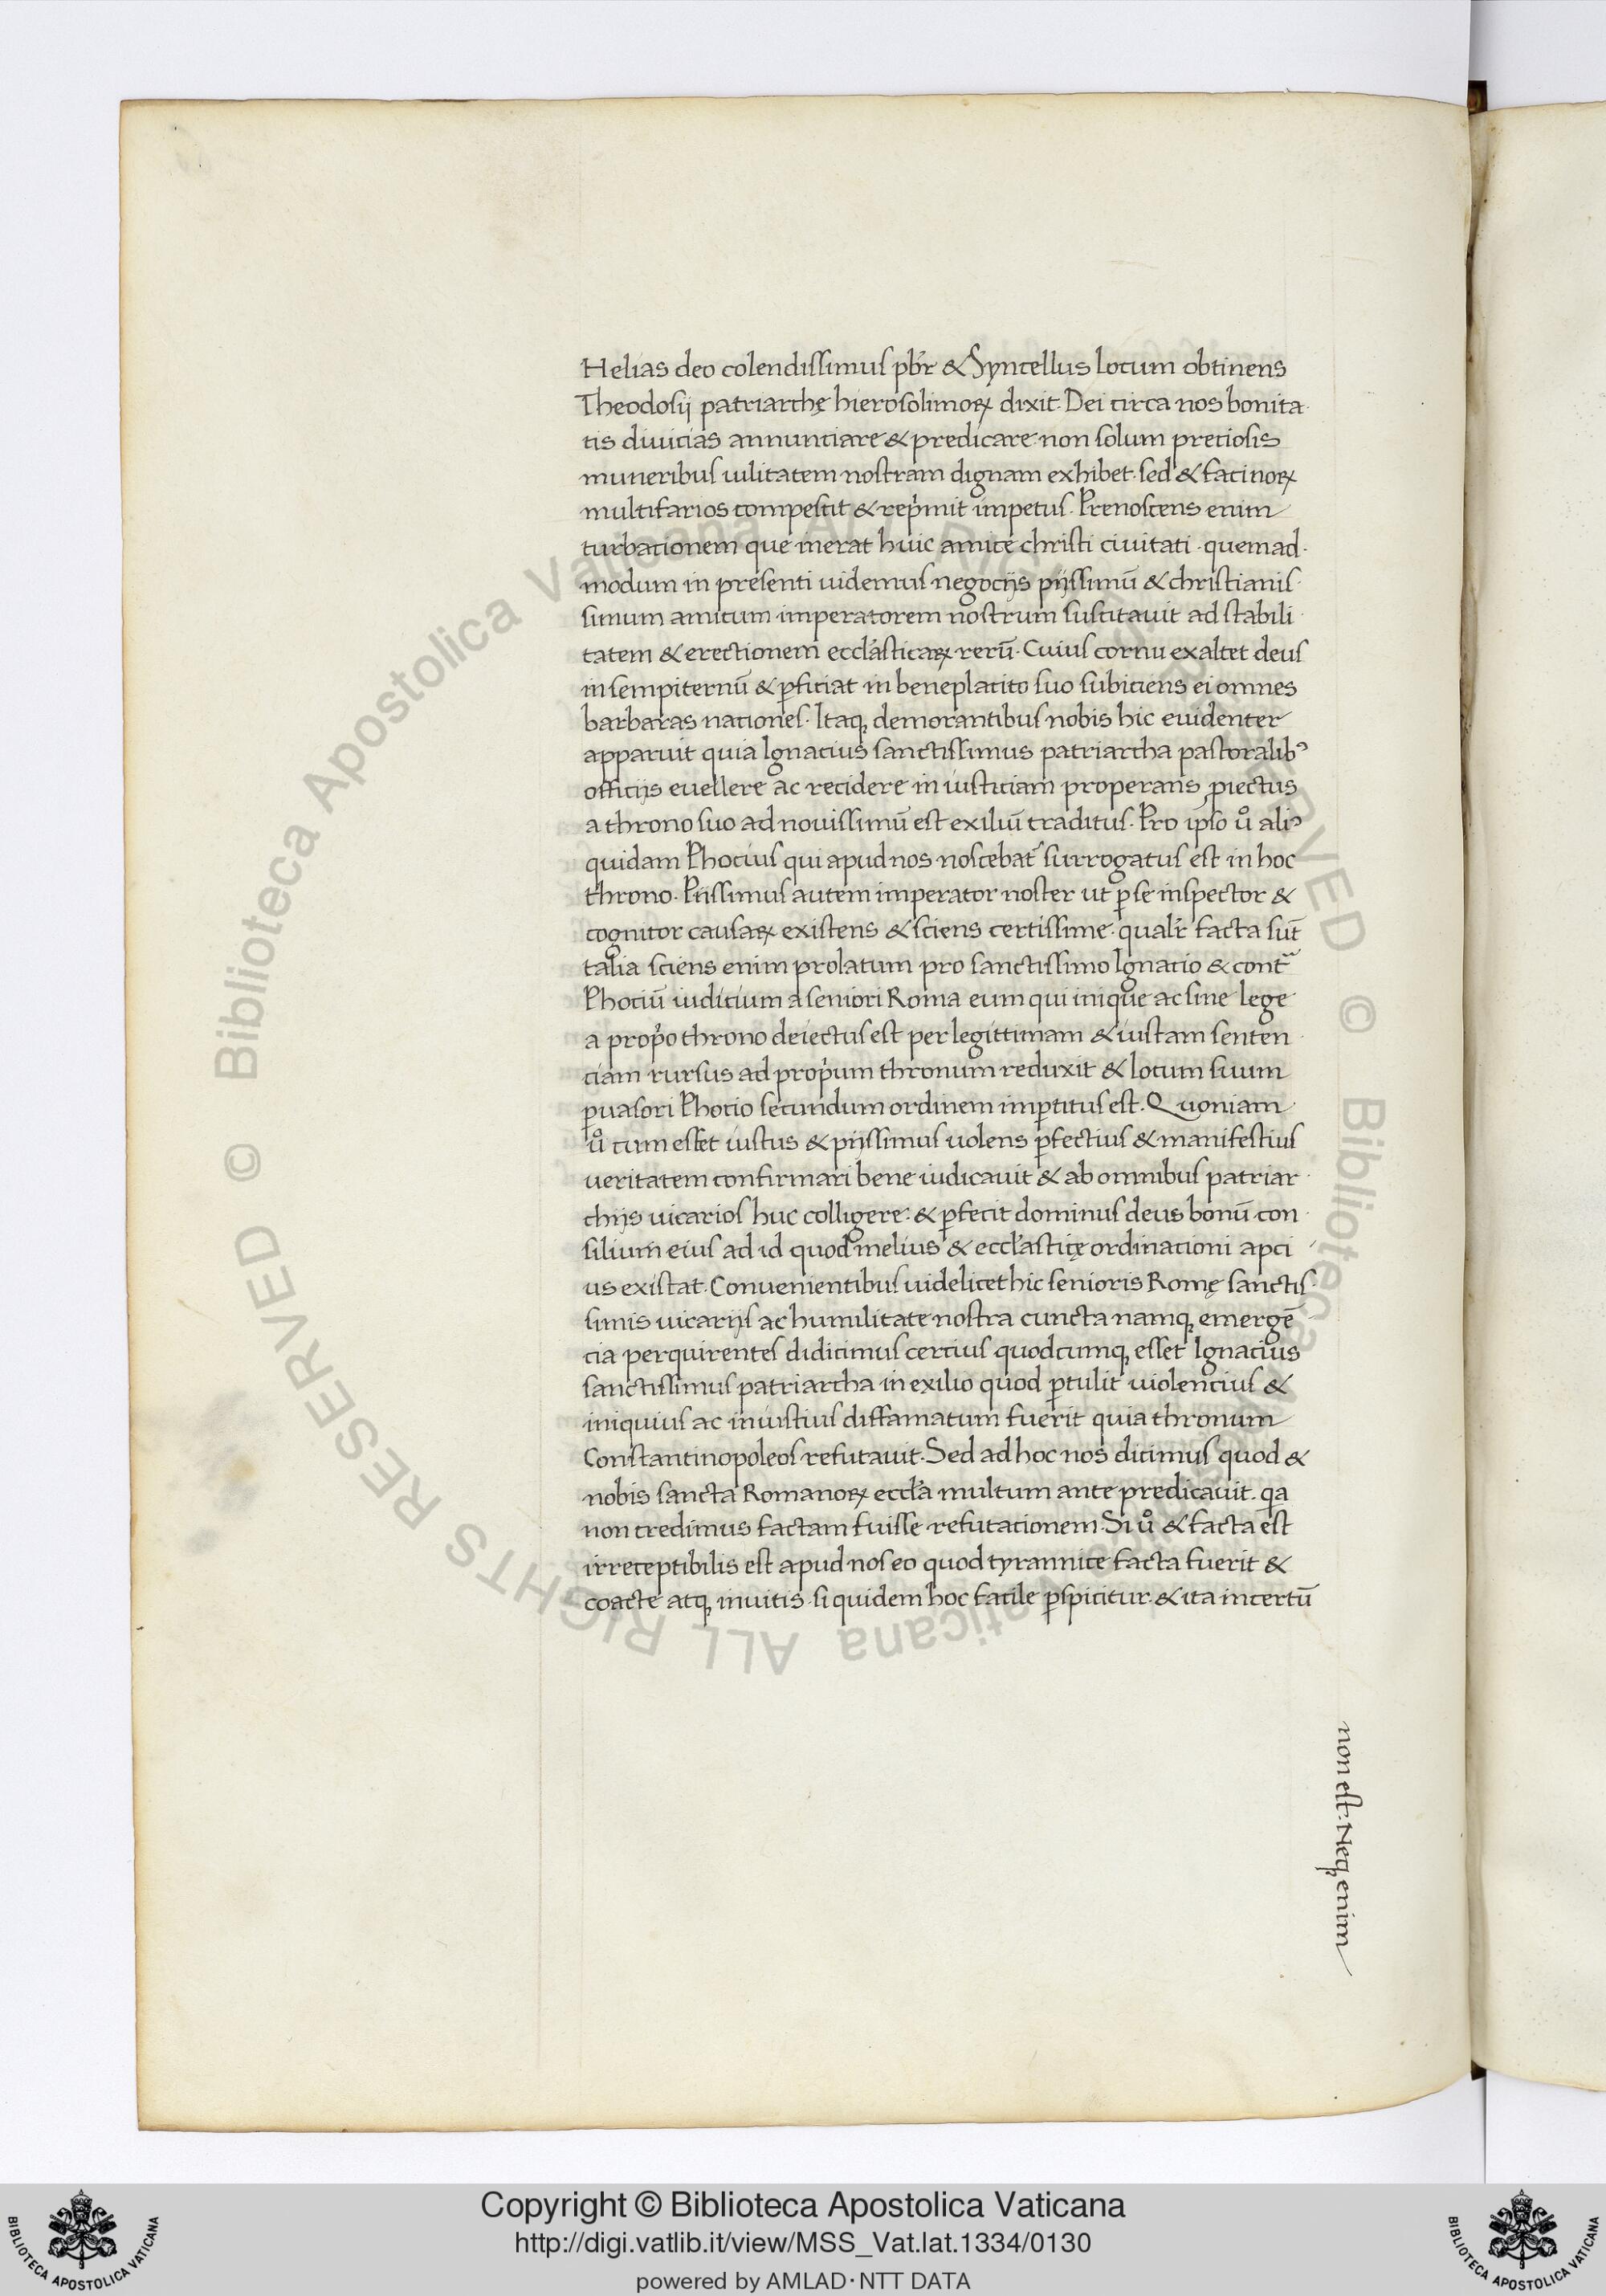 Helias deo colendissimus pbr̃ & Syncellus locum obtinens
Theodosij patriarchę hierosolimoꝝ dixit. Dei circa nos bonita
tis diuicias annunciare & predicare non solum preciosis
muneribus uilitatem nostram dignam exhibet. sed & facinoꝝ
multifarios compescit & rep̾mit impetus. Prenoscens enim
turbationem que inerat huic amice christi ciuitati. quemad
modum in presenti uidemus negocijs pijssimū & christianis
simum amicum imperatorem nostrum suscitauit ad stabili
tatem & erectionem eccl̃asticaꝝ rerū. Cuius cornu exaltet deus
in sempiternū & ꝑficiat in beneplacito suo subiciens ei omnes
barbaras nationes. Itaqꝫ demorantibus nobis hic euidenter
apparuit quia Ignacius sanctissimus patriarcha pastoralibꝰ
officijs euellere ac recidere in iusticiam properans ꝓiectus
a throno suo ad nouissimū est exiliū traditus. Pro ipso uͦ aliꝰ
quidam Phocius qui apud nos noscebat᷑ surrogatus est in hoc
throno. Piissimus autem imperator noster ut ꝑ se inspector &
cognitor causaꝝ existens & sciens certissime. qualr̃ facta sūt
talia sciens enim prolatum pro sanctissimo Ignacio & contᵃ
Phociū iudicium a seniori Roma eum qui inique ac sine lege
a prop̾o throno deiectus est per legittimam & iustam senten
ciam rursus ad prop̾um thronum reduxit & locum suum
ꝑuasori Phocio secundum ordinem imꝑtitus est. Quoniam
uͦ cum esset iustus & pijssimus uolens ꝑfectius & manifestius
ueritatem confirmari bene iudicauit & ab omnibus patriar
chijs uicarios huc colligere. & ꝑfecit dominus deus bonū con
silium eius ad id quod melius & eccl̃asticę ordinationi apci
us existat. Conuenientibus uidelicet hic senioris Romę sanctis
simis uicarijs ac humilitate nostra cuncta namqꝫ emergē
cia perquirentes didicimus cercius quodcumqꝫ esset Ignacius
sanctissimus patriarcha in exilio quod ꝑtulit uiolencius &
iniquius ac iniustius diffamatum fuerit quia thronum
Constantinopoleos refutauit. Sed ad hoc nos dicimus quod &
nobis sancta Romanoꝝ eccl̃a multum ante predicauit. qͣ
non credimus factam fuisse refutacionem. Si uͦ & facta est
irreceptibilis est apud nos eo quod tyrannice facta fuerit &
coacte atqꝫ inuitis. si quidem hoc facile ꝑspicitur. & ita incertū
non est. Neqꝫ enim
© Biblioteca Apostolica Vaticana ALL RIGHTS RESERVED © Biblioteca Apostolica Vaticana ALL RIGHTS RESERVED
BIBLIOTECA APOSTOLICA VATICANA
Copyright © Biblioteca Apostolica Vaticana
http://digi.vatlib.it/view/MSS_Vat.lat.1334/0130
powered by AMLAD·NTT DATA
BIBLIOTECA APOSTOLICA VATICANA